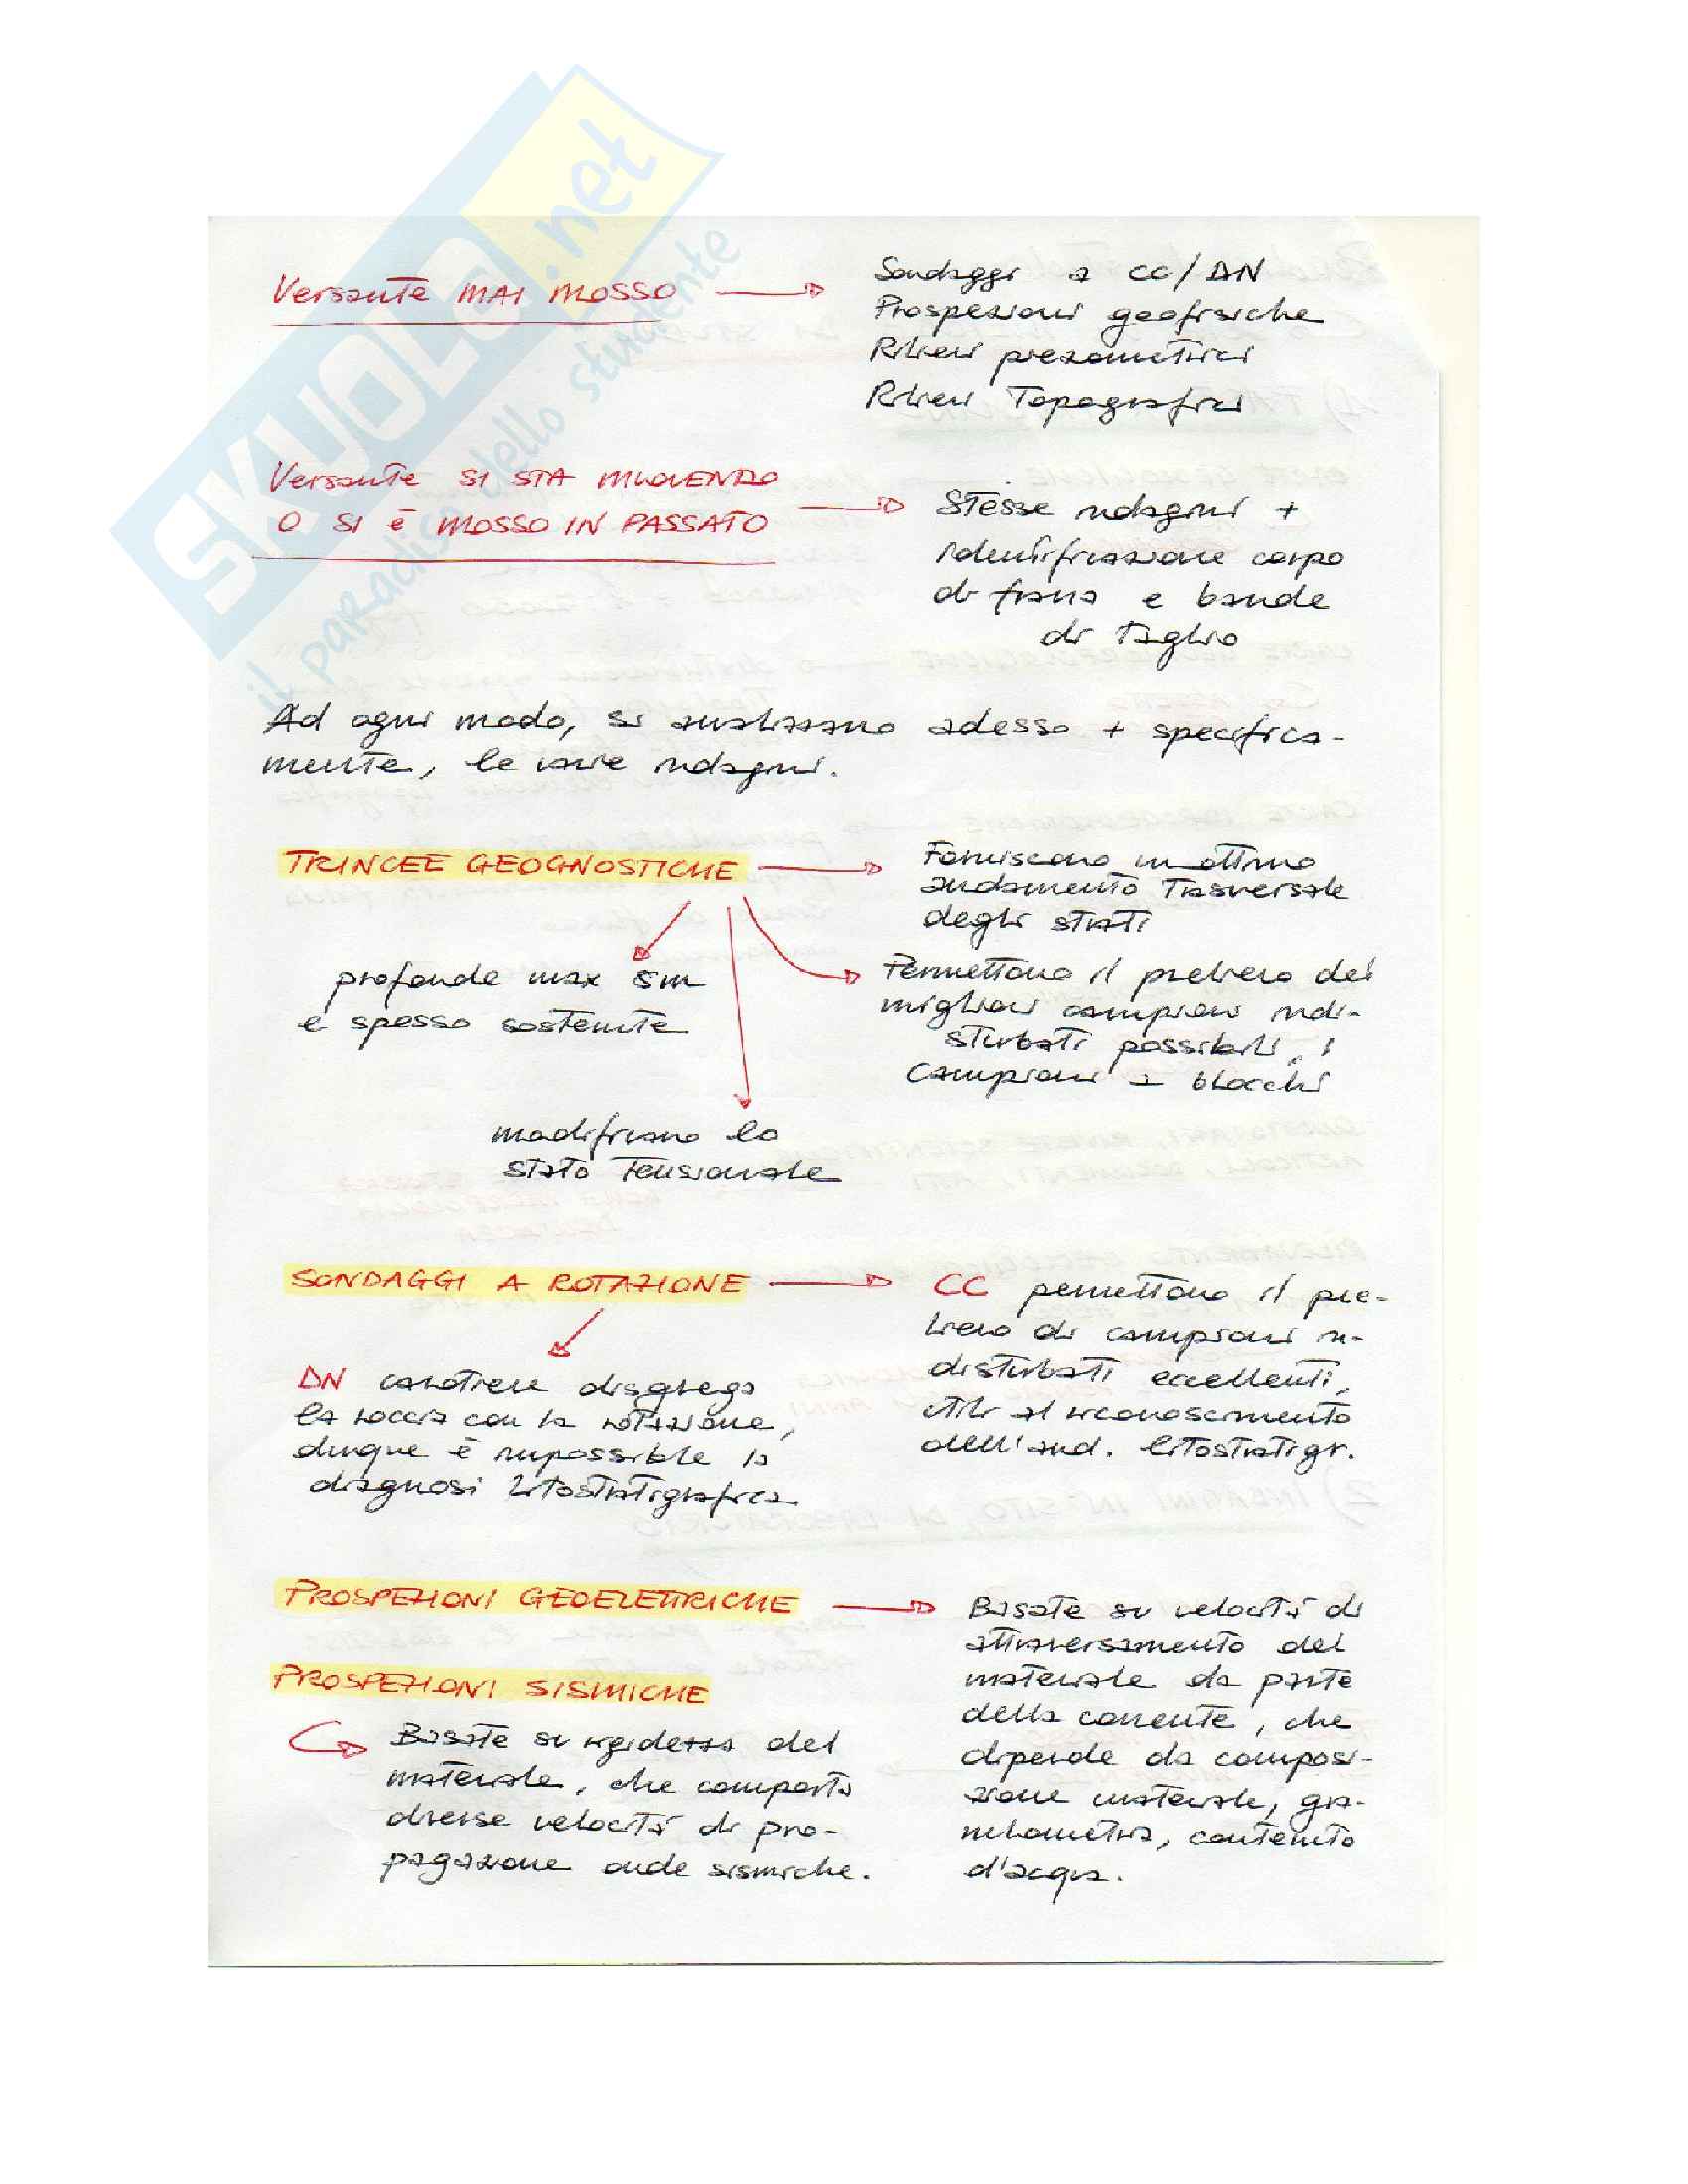 SKUOLA.net
il paradiso dello studente
Versante MAI MOSSO
Sondaggi a CC/DN
Prospezioni geofisiche
Rilievi piezometrici
Rilievi Topografici
Versante SI STA MUOVENDO
O SI È MOSSO IN PASSATO
Stesse indagini +
identificazione corpo
di frana e bande
di Taglio
Ad ogni modo, si analizzano adesso + specifica-
mente, le varie indagini.
TRINCEE GEOGNOSTICHE
Forniscono un ottimo
andamento Trasversale
degli strati
profonde max 5m
e spesso sostenute
Permettono il prelievo dei
migliori campioni indi-
sturbati possibili, i
campioni a blocchi
modificano lo
stato Tensionale
SONDAGGI A ROTAZIONE
CC permettono il pre-
lievo di campioni in-
disturbati eccellenti,
utili al riconoscimento
dell'and. litostratigr.
DN carotiere disgrega
la roccia con la rotazione,
dunque è impossibile la
diagnosi litostratigrafica
PROSPEZIONI GEOELETTRICHE
Basate su velocità di
attraversamento del
materiale da parte
della corrente, che
dipende da composi-
zione materiale, gra-
nulometria, contenuto
d'acqua.
PROSPEZIONI SISMICHE
Basate su rigidezza del
materiale, che comporta
diverse velocità di pro-
pagazione onde sismiche.